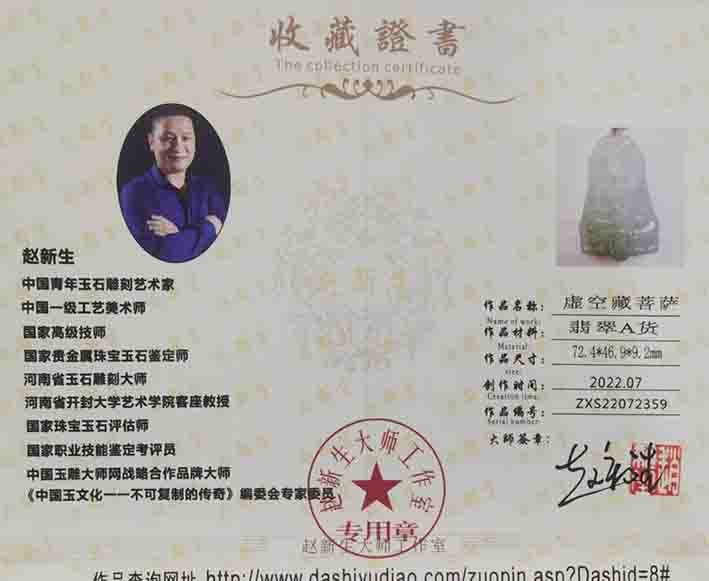 收藏證書
The collection certificate
赵新生
中国青年玉石雕刻艺术家
中国一级工艺美术师
国家高级技师
国家贵金属珠宝玉石鉴定师
河南省玉石雕刻大师
河南省开封大学艺术学院客座教授
国家珠宝玉石评估师
国家职业技能鉴定考评员
中国玉雕大师网战略合作品牌大师
《中国玉文化一一不可复制的传奇》编委会专家委员
作品名称： 虚空藏菩萨
Name of work:
作品材料： 翡翠A货
Material:
作品尺寸： 72.4*46.9*9.2mm
size:
创作时间： 2022.07
Creation time:
作品编号： ZXS22072359
Serial number:
大师签章：
赵新生大师工作室
专用章
赵新生大师工作室
作品查询网址 http://www.dashiyudiao.com/zuopin.asp?Dashid=8#